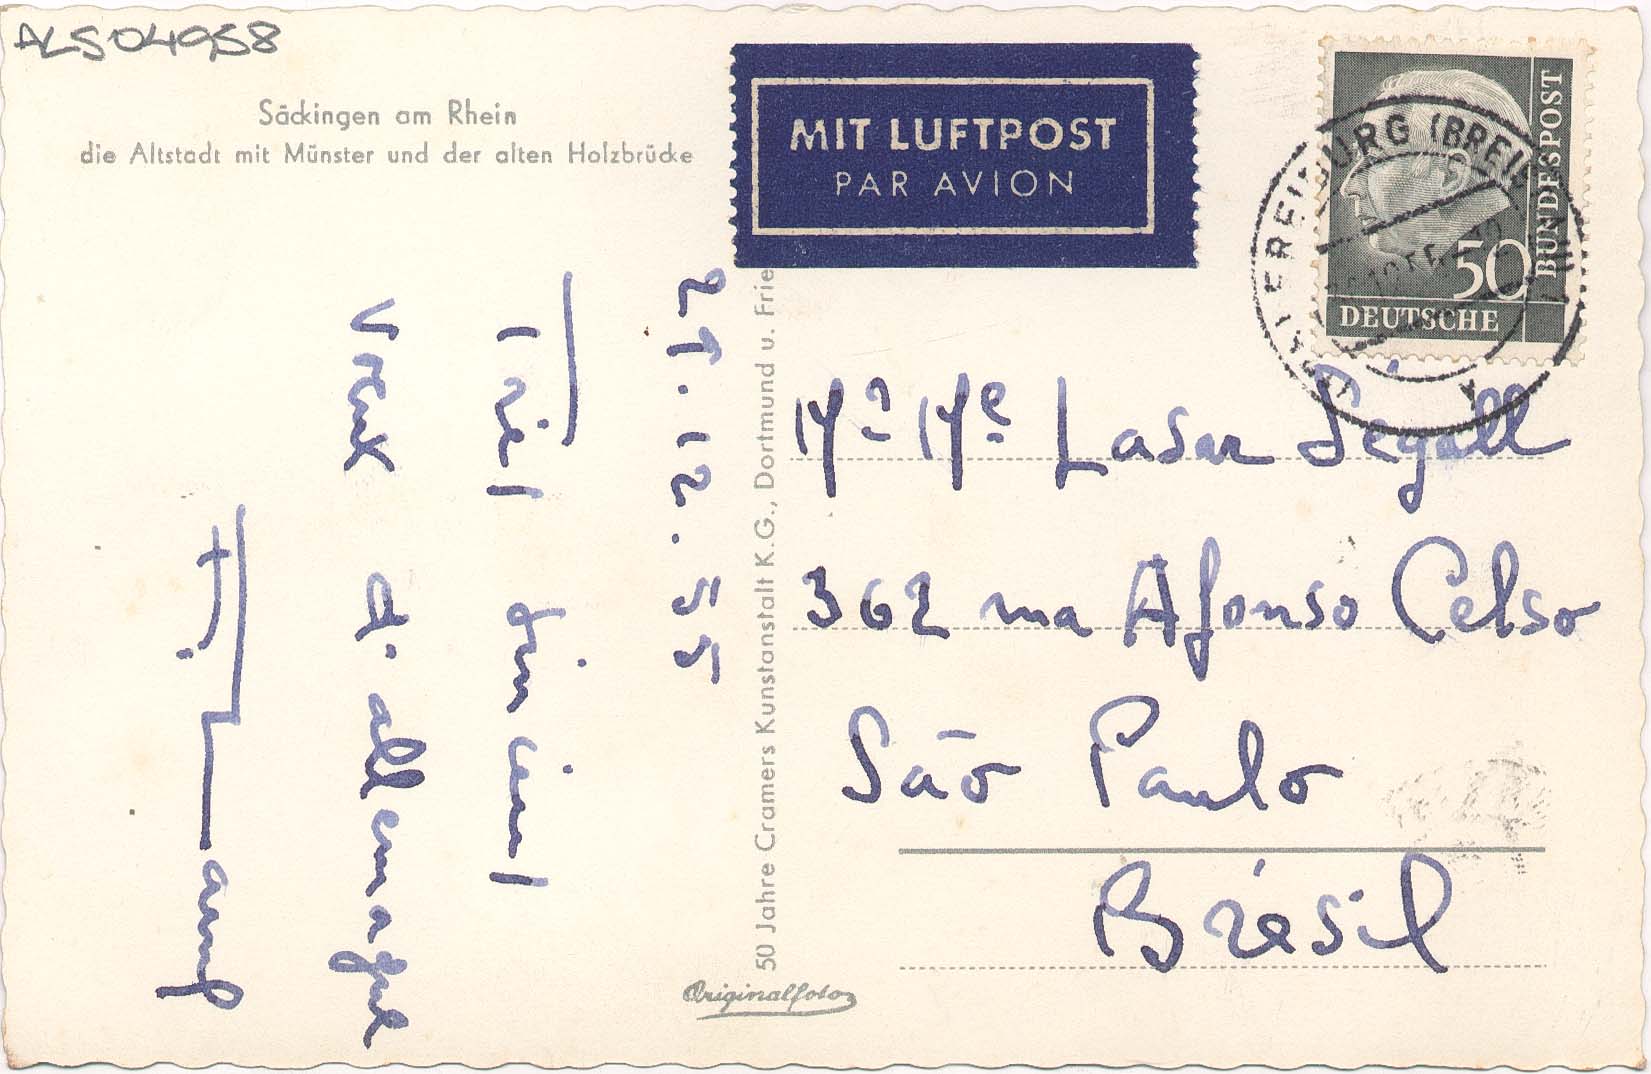 ALS04958
Säckingen am Rhein
die Altstadt mit Münster und der alten Holzbrücke
MIT LUFTPOST
PAR AVION
BUNDESPOST
50
DEUTSCHE
FREIBURG (BREI
27.12.55
allemagne
50 Jahre Cramers Kunstanstalt K.G., Dortmund u. Frie
Originalfoto
Lasar Ségall
362 rua Afonso Celso
São Paulo
Brésil